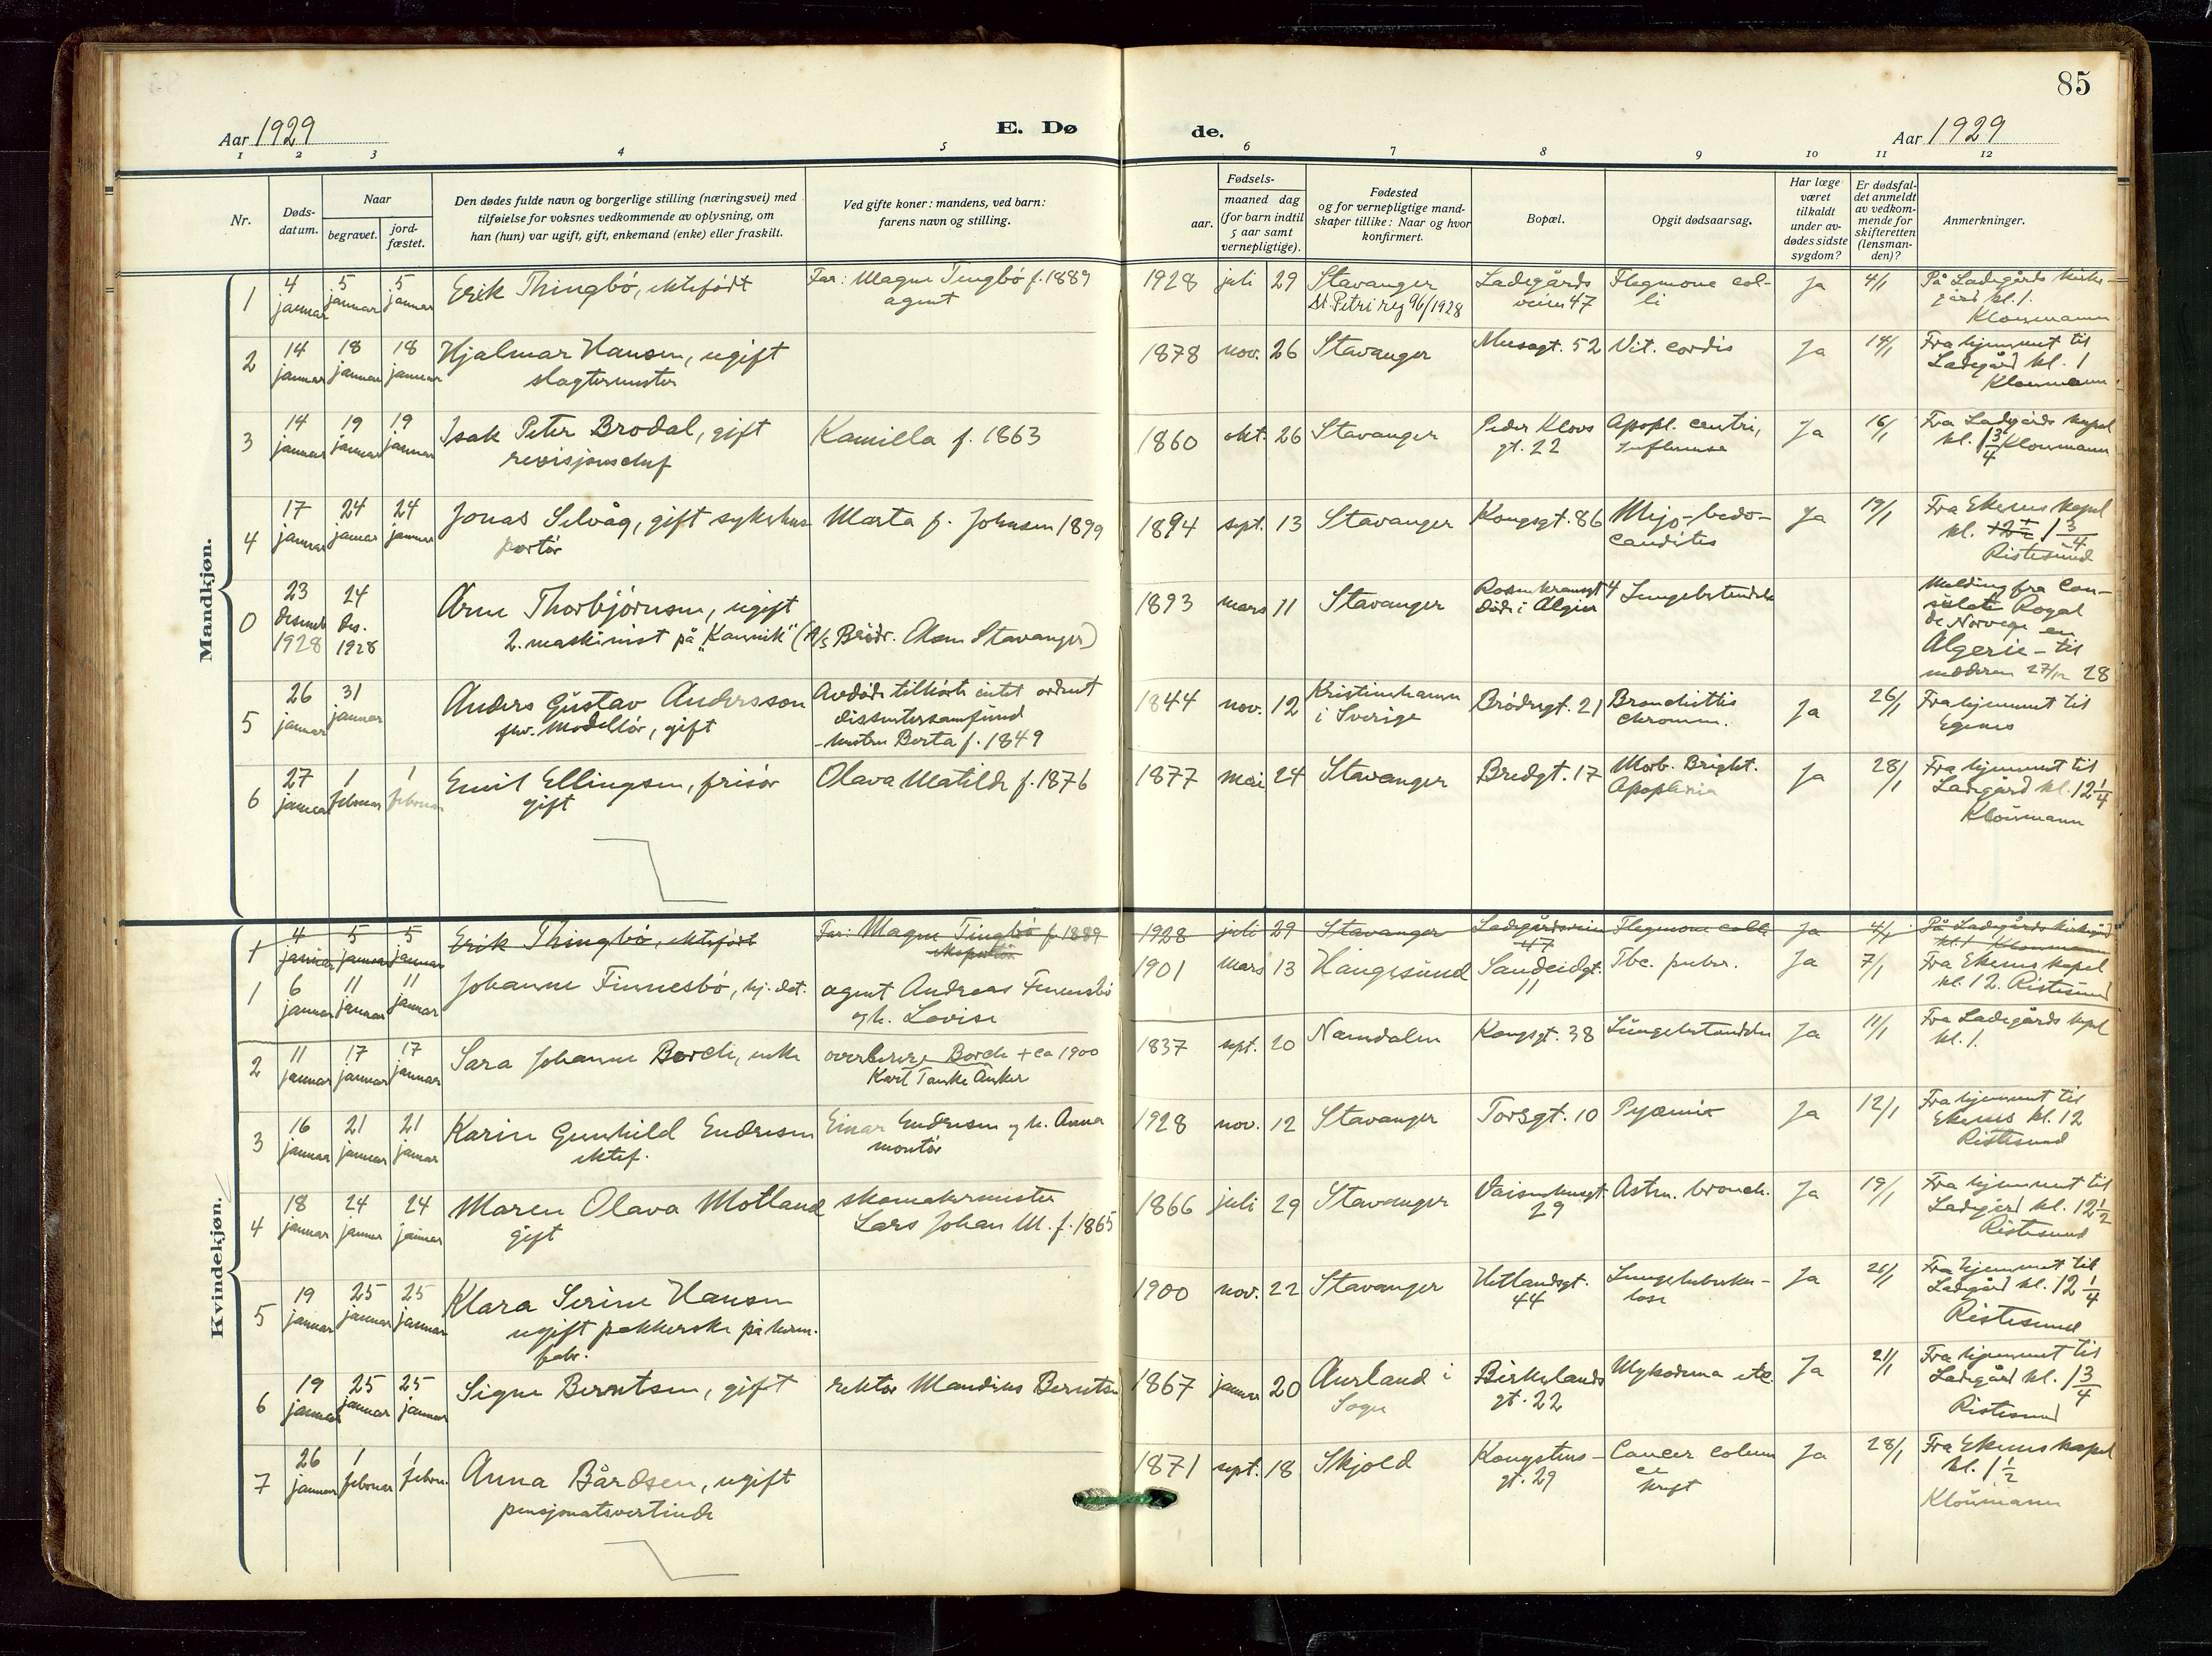 85
Aar 1929
E. Dø
de.
Aar 1929
1 2 3 4 5 6 7 8 9 10 11 12
Nr.
Døds-
datum.
Naar
begravet.
jord-
fæstet.
Den dødes fulde navn og borgerlige stilling (næringsvei) med
tilføielse for voksnes vedkommende av oplysning, om
han (hun) var ugift, gift, enkemand (enke) eller fraskilt.
Ved gifte koner: mandens, ved barn:
farens navn og stilling.
Fødsels-
aar.
maaned dag
(for barn indtil
5 aar samt
vernepligtige).
Fødested
og for vernepligtige mand-
skaper tillike: Naar og hvor
konfirmert.
Bopæl.
Opgit dødsaarsag.
Har læge
været
tilkaldt
under av-
dødes sidste
sygdom?
Er dødsfal-
det anmeldt
av vedkom-
mende for
skifteretten
(lensman-
den)?
Anmerkninger.
Mandkjøn.
1
4 januar
5 januar
5 januar
Erik Thingbö, ektefödt
Far: Magne Tingbö f. 1889
agent
1928 juli 29
Stavanger
St. Petri reg 96/1928
Ladegårds
veien 47
Flegmone col-
li
Ja
4/1
På Ladegårds kirke-
gård kl. 1.
Kloumann
2
14 januar
18 januar
18 januar
Hjalmar Hansen, ugift
slagtermester
1878 nov. 26
Stavanger
Musegt. 52
Vit. cordis
Ja
14/1
Fra hjemmet til
Ladegård kl. 1
Kloumann
3
14 januar
19 januar
19 januar
Isak Peter Brodal, gift
revisjonschef
Kamilla f. 1863
1860 okt. 26
Stavanger
Peder Klows
gt. 22
Apopl. centri,
Influensa
Ja
16/1
Fra Ladegårds kapel
kl. 1 3/4 Kloumann
4
17 januar
24 januar
24 januar
Jonas Selvåg, gift sykehus
portör
Marta f. Johnsen 1899
1894 sept. 13
Stavanger
Kongsgt. 86
Ja
19/1
Fra Ekenes kapel
kl. 1 3/4
Ristesund
0
23 desember 1928
24 des. 1928
Arne Thorbjörnsen, ugift
2. maskinist på "Kannik" (A/s Brödr. Olsen Stavanger)
1893 mars 11
Stavanger
Rosenkransgt 4
död i Algier
Lungebetendelse
Melding fra Con-
sulate Royal
de Norvege en
Algerie - til
moderen 27/12 28
5
26 januar
31 januar
Anders Gustav Andersson
fhv. Modellör, gift
Avdöde tilhörte intet ordnet
dissentersamfund
- hustru Berta f. 1849
1844 nov. 12
Kristinehamn
i Sverige
Brödregt. 21
Bronchittis
chronm.
Ja
26/1
Fra hjemmet til
Egenes
6
27 januar
1 februar
1 februar
Emil Ellingsen, frisör
gift
Olava Matilde f. 1876
1877 mai 24
Stavanger
Bredgt. 17
Morb. Bright.
Apoplexia
Ja
28/1
Fra hjemmet til
Ladegård kl. 12 1/4
Kloumann
Kvindekjøn.
1
4 januar
5 januar
5 januar
Erik Thingbö, ektefödt
Far: Magne Tingbö f. 1889
1928 juli 29
Stavanger
Ladegårdsveien
47
Flegmone colli
Ja
4/1
På Ladegårds kirkegård
kl. 1 Kloumann
1
6 januar
11 januar
11 januar
Johanne Finnesbö, hj. dat.
agent Andreas Finnesbö
og h. Lovise
1901 mars 13
Haugesund
Sandeidgt.
11
Tbc. pulm.
Ja
7/1
Fra Ekenes kapel
kl. 12. Ristesund
2
11 januar
17 januar
17 januar
Sara Johanne Borch, enke
overlærer Borch + ca 1900
Karl Tanke Anker
1837 sept. 20
Namdalen
Kongsgt. 38
Lungebetendelse
Ja
11/1
Fra Ladegårds kpl
kl. 1.
3
16 januar
21 januar
21 januar
Karin Gunhild Endresen
ektef.
Einar Endresen og h. Anna
montör
1928 nov. 12
Stavanger
Torsgt. 10
Pyæmie
Ja
12/1
Fra hjemmet til
Ekenes kl. 12
Ristesund
4
18 januar
24 januar
24 januar
Maren Olava Motland
gift
skomakermester
Lars Johan M. f. 1865
1866 juli 29
Stavanger
Vaisenhusgt.
29
Astm. bronch.
Ja
19/1
Fra hjemmet til
Ladegård kl. 12 1/2
Ristesund
5
19 januar
25 januar
25 januar
Klara Serine Hansen
ugift pakkerske på herm.
fabr.
1900 nov. 22
Stavanger
Hetlandsgt.
44
Lungetuberku-
lose
Ja
21/1
Fra hjemmet til
Ladegård kl. 12 1/4
Ristesund
6
19 januar
25 januar
25 januar
Signe Berntsen, gift
rektor Mandius Berntsen
1867 januar 20
Aurland i
Sogn
Birkelands
gt. 22
etc.
Ja
21/1
Fra hjemmet til
Ladegård kl. 1 3/4
Ristesund
7
26 januar
1 februar
1 februar
Anna Bårdsen, ugift
pensjonatsvertinde
1871 sept. 18
Skjold
Kongstens-
gt. 29
Cancer
Ja
28/1
Fra Ekenes kapel
kl. 1 1/2
Kloumann